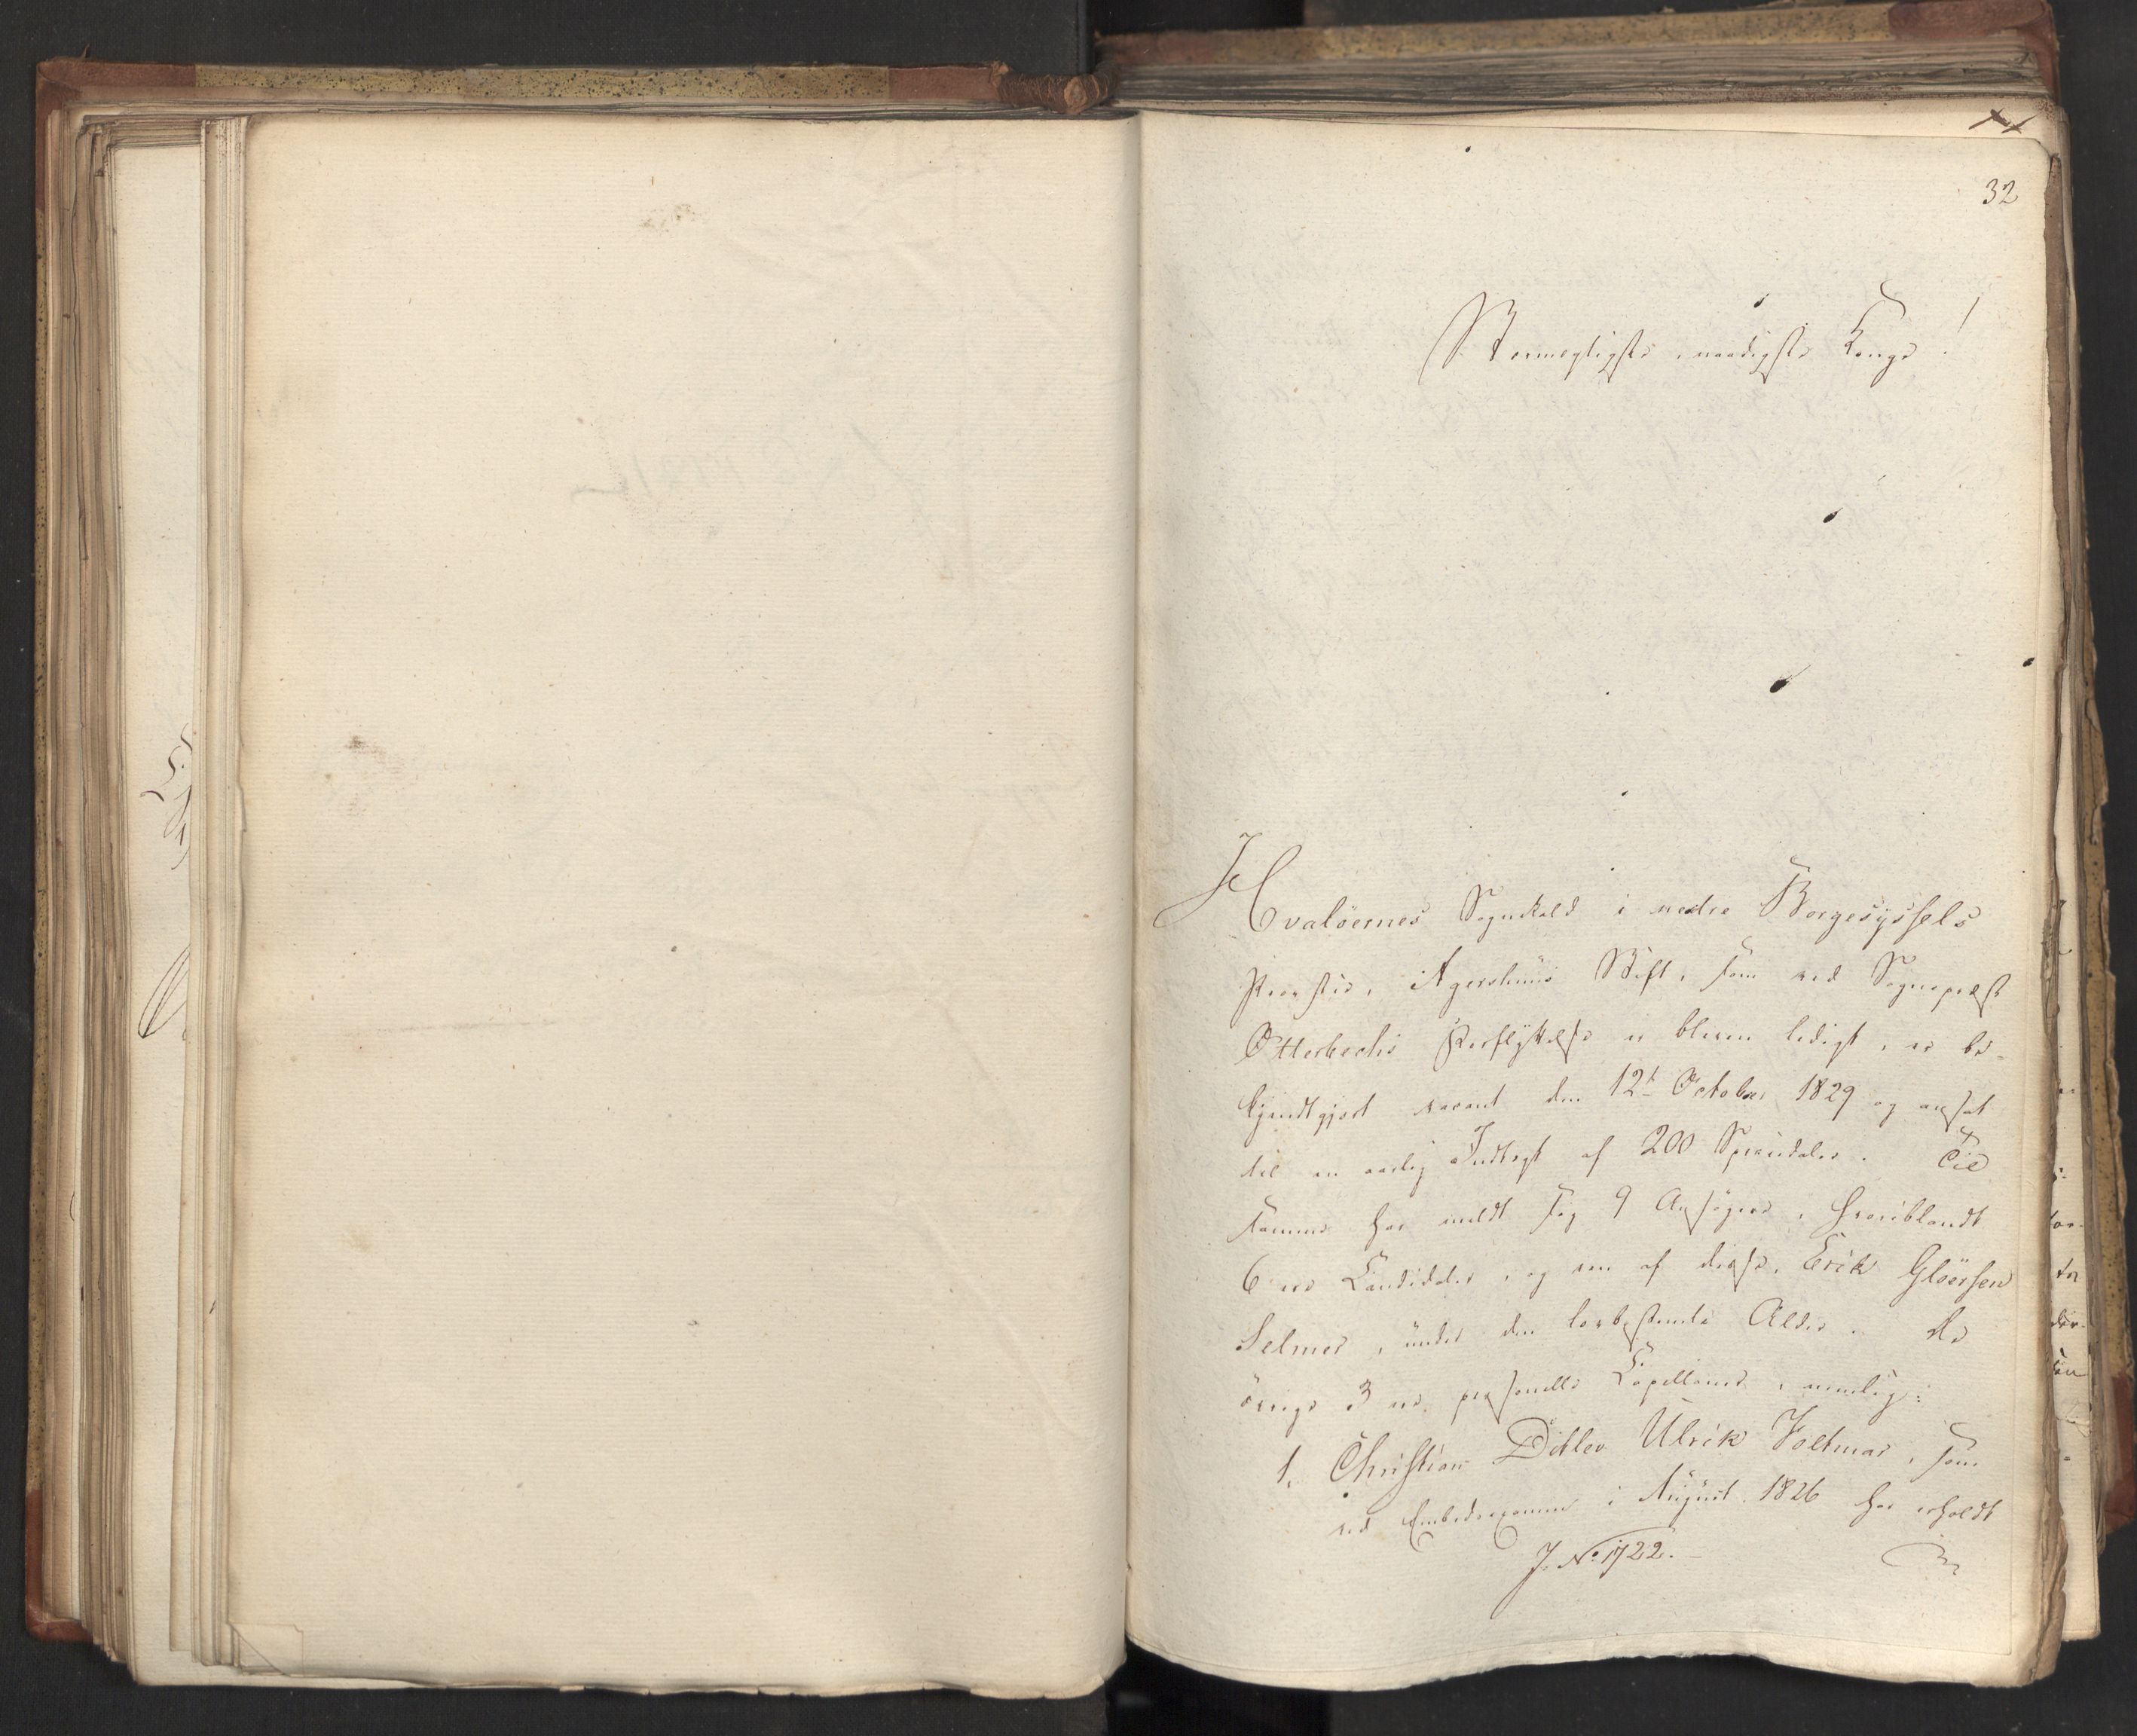 32
Stormægtigste, naadigste Konge!
Hvalöernes Sognekald i nedre Borgesyssels
Provstie, Agershuus Stift, som ved Sognepræst
Otterbechs Forflyttelse er bleven ledigt, er be-
kjendtgjort vacant den 12te October 1829 og ansat
til en aarlig Indtægt af 200 Speciedaler. Til
samme har meldt sig 9 Ansögere, hvoriblandt
6 ere Candidater, og een af disse, Erik Glöersen
Selmer, under den lovbestemte Alder. De
övrige 3 ere personelle Capellaner, nemlig:
1. Christian Ditlev Ulrik Foltmar, som
ved Embedsexamen i August 1826 har erholdt
J. No 1722.